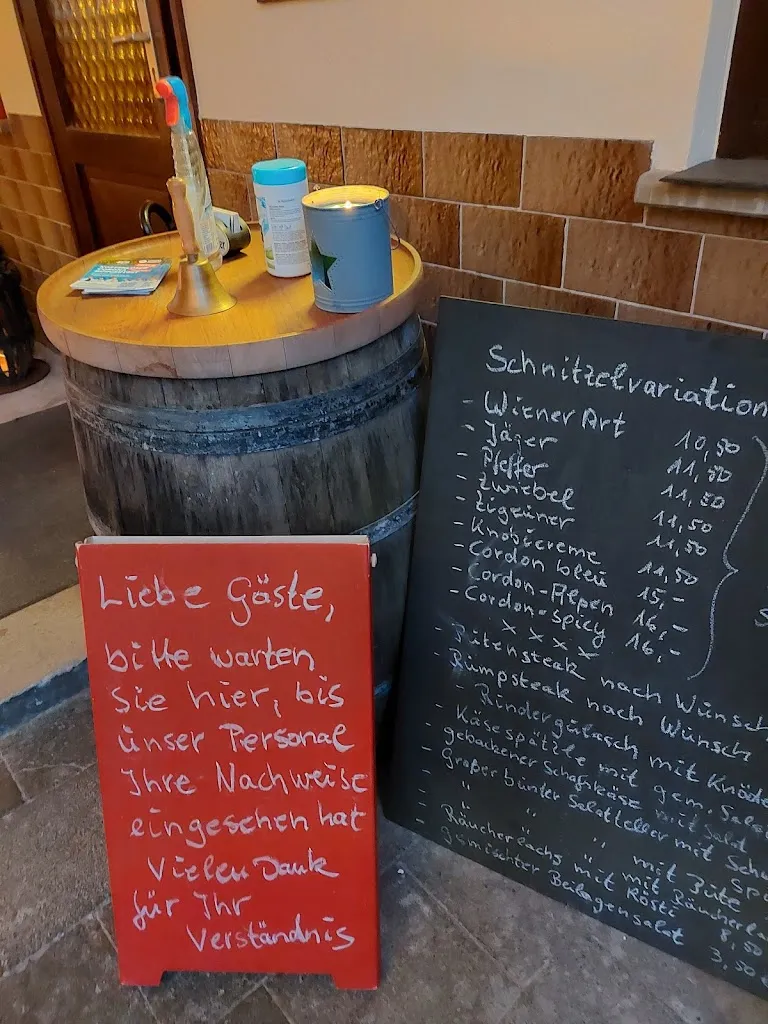 Liebe Gäste,
bitte warten
Sie hier, bis
unser Personal
Ihre Nachweise
eingesehen hat
Vielen Dank
für Ihr
Verständnis
Schnitzelvariation
- Wiener Art 10,50
- Jäger 11,50
- Pfeffer 11,50
- Zwiebel 11,50
- Zigeuner 11,50
- Knobicreme 11,50
- Cordon bleu 15,-
- Cordon-Alpen 16,-
- Cordon-Spicy 16,-
x x x x
- Putensteak nach Wunsch
- Rumpsteak nach Wunsch
- Rindergulasch mit Knöde
- Käsespätzle mit gem. Salat
- gebackener Schafskäse mit Salat
- Großer bunter Salatteller mit Schw
- " " " mit Pute
- " " " mit Räucherla
- Räucherlachs mit Rösti 8,50
gemischter Beilagensalat 3,50 €